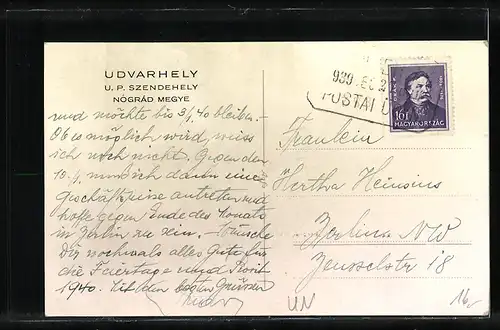 UDVARHELY
U. P. SZENDEHELY
NÓGRÁD MEGYE
und möchte bis 3/1 40 bleiben. -
Ob es möglich wird, weiss
ich noch nicht. Gegen den
10./1. muss ich dann eine
Geschäftsreise antreten und
hoffe gegen Ende des Monats
in Berlin zu sein. - Wünsche
Dir nochmals alles Gute für
die Feiertage und Prosit
1940. Mit den besten Grüssen
939
POSTAI Ü
DEÁK F.
16 f
MAGYARORSZÁG
Fräulein
Hertha Heinsius
Berlin NW
18
UN